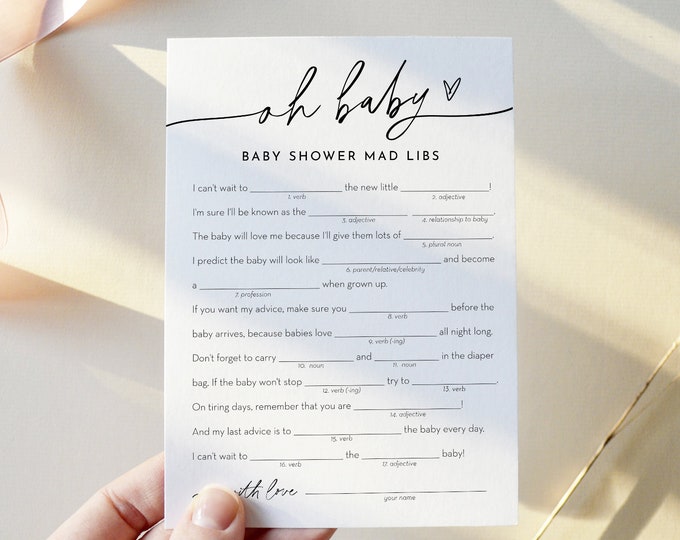 oh baby
BABY SHOWER MAD LIBS
I can't wait to ____________ the new little ____________!
1. verb 2. adjective
I'm sure I'll be known as the ____________ ____________.
3. adjective 4. relationship to baby
The baby will love me because I'll give them lots of ____________.
5. plural noun
I predict the baby will look like ____________ and become
6. parent/relative/celebrity
a ____________ when grown up.
7. profession
If you want my advice, make sure you ____________ before the
8. verb
baby arrives, because babies love ____________ all night long.
9. verb (-ing)
Don't forget to carry ____________ and ____________ in the diaper
10. noun 11. noun
bag. If the baby won't stop ____________ try to ____________.
12. verb (-ing) 13. verb
On tiring days, remember that you are ____________!
14. adjective
And my last advice is to ____________ the baby every day.
15. verb
I can't wait to ____________ the ____________ baby!
16. verb 17. adjective
with love ____________
your name